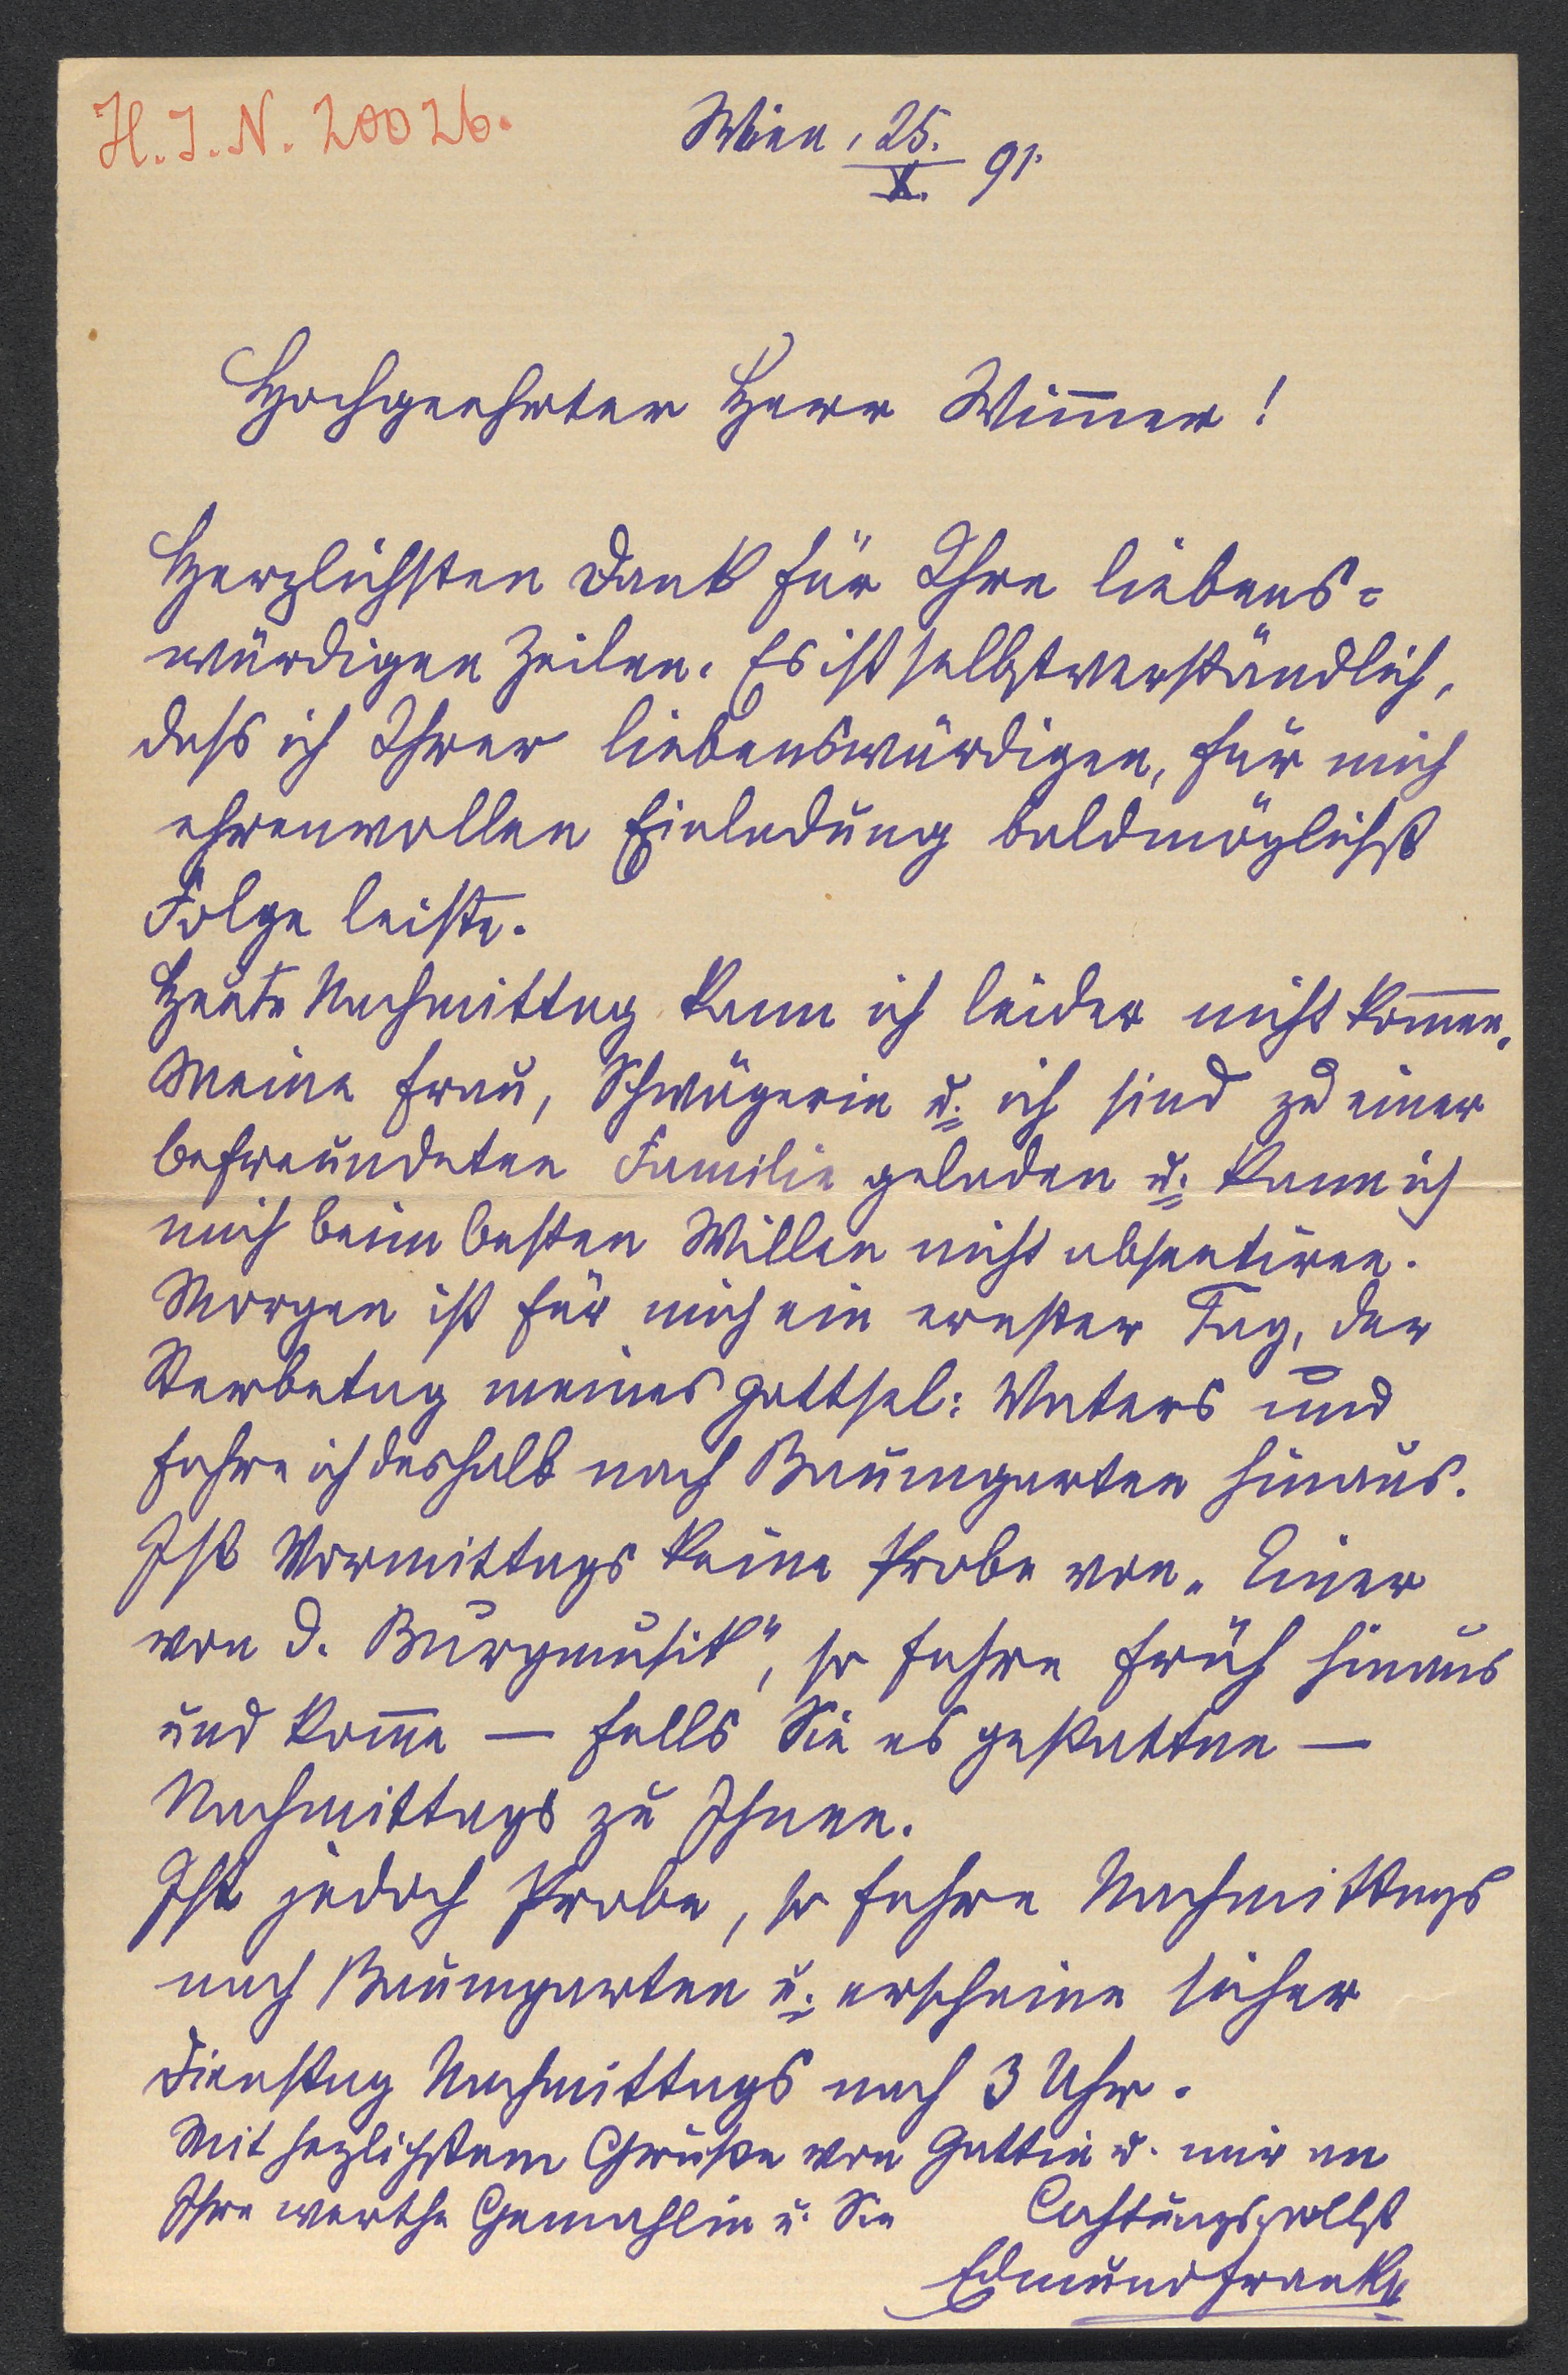 H.I.N. 20026.
Wien, 25.
X. 91.
Hochgeehrter Herr Wim̅er!
Herzlichsten Dank für Ihre liebens=
würdigen Zeilen. Es ist selbstverständlich,
dass ich Ihrer liebenswürdigen, für mich
ehrenvollen Einladung baldmöglichst
Folge leiste.
Heute Nachmittag kann ich leider nicht kom̅en.
Meine Frau, Schwägerin u. ich sind zu einer
befreundeten Familie geladen u. kann ich
mich beim besten Willen nicht absentiren.
Morgen ist für mich ein ernster Tag, der
Sterbetag meines gottsel: Vaters und
fahre ich deshalb nach Baumgarten hinaus.
Ist Vormittags keine Probe von „Einer
von d. Burgmusik", so fahre früh hinaus
und kom̅e — falls Sie es gestatten —
Nachmittags zu Ihnen.
Ist jedoch Probe, so fahre Nachmittags
nach Baumgarten u. erscheine sicher
Dienstag Nachmittags nach 3 Uhr.
Mit hezlichstem Gruße von Gattin u. mir an
Ihre werthe Gemahlin u. Sie Achtungsvollst
Edmund Franke